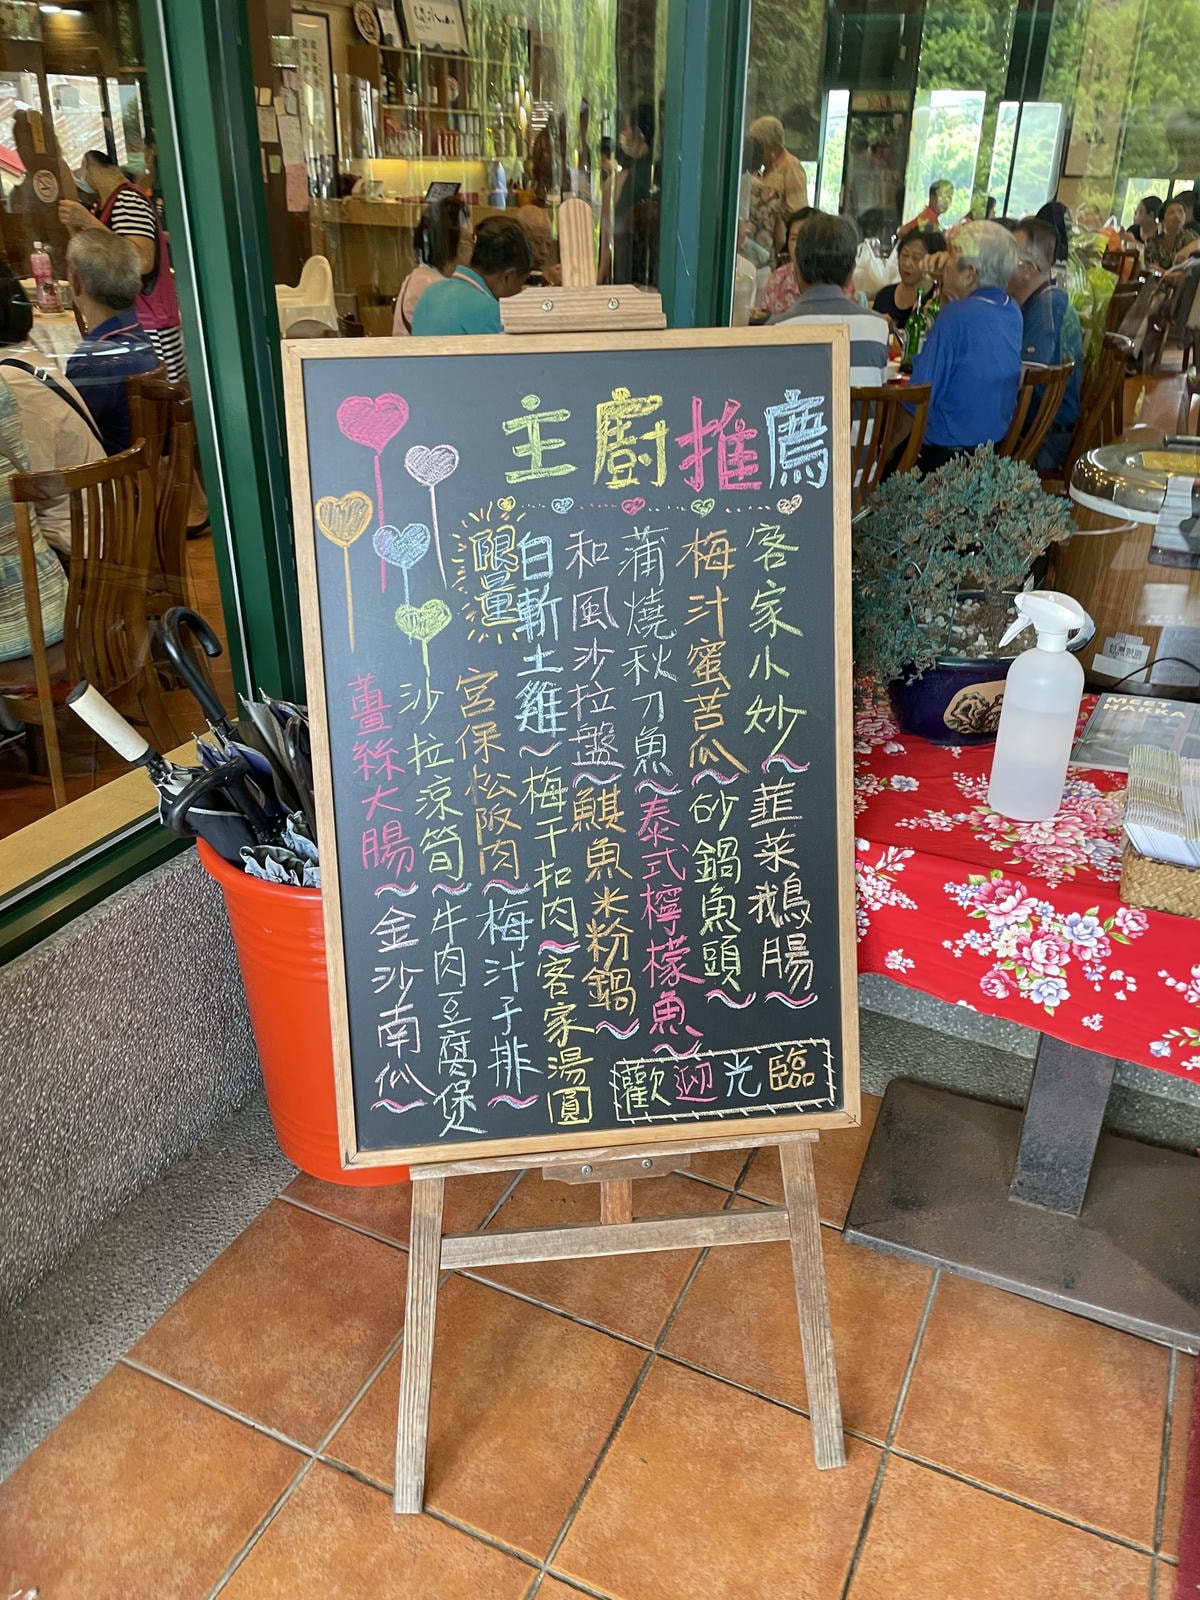 主廚推薦
客家小炒~韮菜鵝腸~
梅汁蜜苦瓜~砂鍋魚頭~
蒲燒秋刀魚~泰式檸檬魚~
和風沙拉盤~鯕魚米粉鍋~
限量
白斬土雞~梅干扣肉~客家湯圓
宮保松阪肉~梅汁子排~
沙拉涼筍~牛肉豆腐煲
薑絲大腸~金沙南瓜~
歡迎光臨
MEET
HAKKA